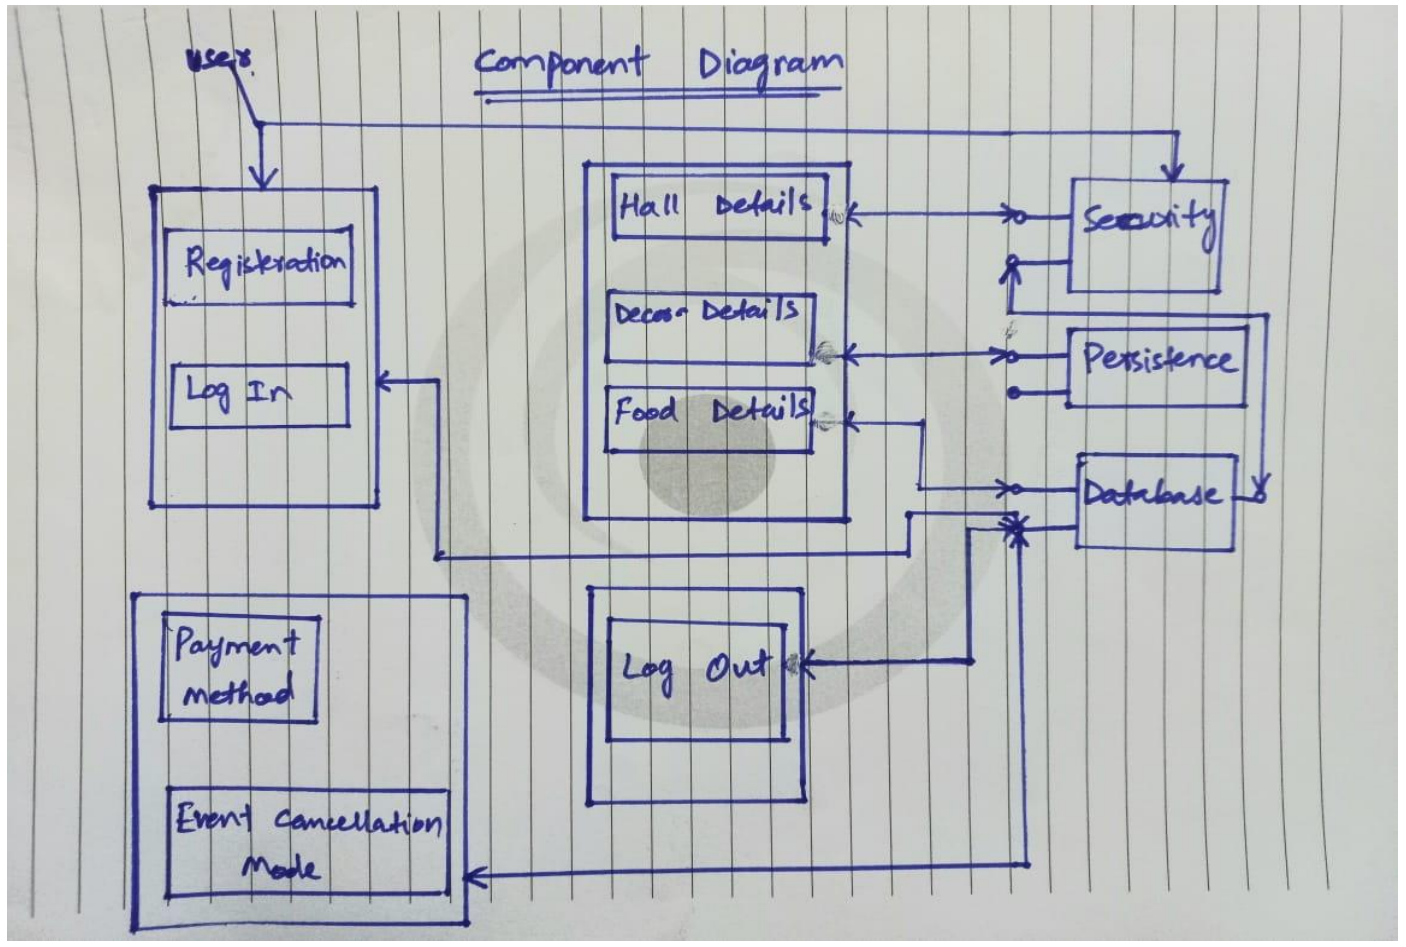 user
Component Diagram
Registeration
Log In
Hall Details
Decor Details
Food Details
Security
Persistence
Database
Payment
Method
Event Cancellation
Mode
Log Out